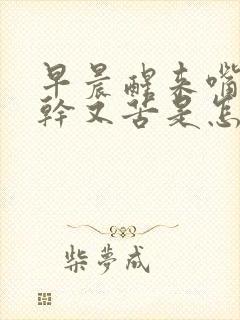 早晨醒来嘴
幹又苦是怎
柴夢成